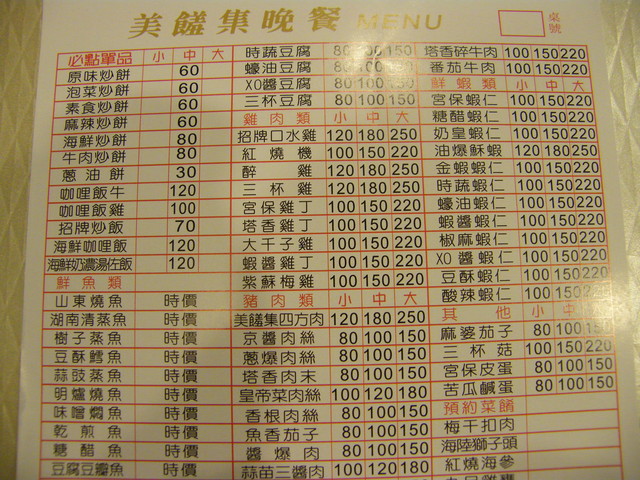 美饈集晚餐 MENU
桌號
必點單品 小 中 大
原味炒餅 60
泡菜炒餅 60
素食炒餅 60
麻辣炒餅 60
海鮮炒餅 80
牛肉炒餅 80
蔥油餅 30
咖哩飯牛 120
咖哩飯雞 100
招牌炒飯 70
海鮮咖哩飯 120
海鮮奶濃湯佐飯 120
鮮魚類
山東燒魚 時價
湖南清蒸魚 時價
樹子蒸魚 時價
豆酥鱈魚 時價
蒜豉蒸魚 時價
明爐燒魚 時價
味噌燜魚 時價
乾煎魚 時價
糖醋魚 時價
豆腐豆瓣魚 時價
時蔬豆腐 80 100 150
蠔油豆腐 80 100 150
XO醬豆腐 80 100 150
三杯豆腐 80 100 150
雞肉類 小 中 大
招牌口水雞 120 180 250
紅燒機 100 150 220
醉雞 120 180 250
三杯雞 120 180 250
宮保雞丁 100 150 220
塔香雞丁 100 150 220
大千子雞 100 150 220
蝦醬雞丁 100 150 220
紫蘇梅雞 100 150 220
豬肉類 小 中 大
美饈集四方肉 120 180 250
京醬肉絲 80 100 150
蔥爆肉絲 80 100 150
塔香肉末 80 100 150
皇帝菜肉絲 100 120 180
香根肉絲 80 100 150
魚香茄子 80 100 150
醬爆肉 80 100 150
蒜苗三醬肉 100 120 180
塔香碎牛肉 100 150 220
番茄牛肉 100 150 220
鮮蝦類 小 中 大
宮保蝦仁 100 150 220
糖醋蝦仁 100 150 220
奶皇蝦仁 100 150 220
油爆酥蝦 120 180 250
金蝦蝦仁 100 150 220
時蔬蝦仁 100 150 220
蠔油蝦仁 100 150 220
蝦醬蝦仁 100 150 220
椒麻蝦仁 100 150 220
XO醬蝦仁 100 150 220
豆酥蝦仁 100 150 220
酸辣蝦仁 100 150 220
其他 小 中 大
麻婆茄子 80 100 150
三杯菇 100 150 220
宮保皮蛋 80 100 150
苦瓜鹹蛋 80 100 150
預約菜餚
梅干扣肉
海陸獅子頭
紅燒海參